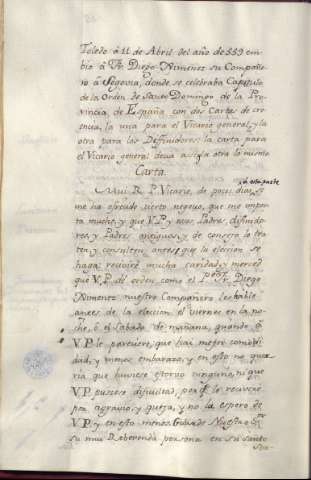 Toledo à 11 de Abril del año de 559 em-
bio à Fr. Diego Ximenes su Compañe-
ro à Segovia, donde se celebraba Capitulo
de la Orden de Santo Domingo de la Pro-
vincia de España con dos Cartas de cre-
encia, la una para el Vicario general, y la
otra para los Difinidores: la carta para
el Vicario general decia assi, y la otra lo mismo
Carta.
Mui R. P. Vicario, de pocos dias à esta parte
me ha ofrecido cierto negocio, que me impor-
ta mucho, y que V.P. y esos Padres difinido-
res, y Padres antiguos, y de consejo lo tra-
ten, y consulten antes que la eleccion se
haga: recivirè mucha caridad, y merced
que V.P. dè orden, como el P.e Fr. Diego
Ximenez nuestro Compañero les hable
antes de la eleccion el viernes en la no-
che, ò el Sabado de mañana, quando à
V.P. le pareciere, que hai mejor comodi-
dad, y menos embarazo, y en esto no que-
ria que huviese estorvo ninguno, ni que
V.P. pusiese dificultad, porq.e lo recivirè
por agravio, y queja, y no la espero de
V.P. y en esto menos. Guarde Nuestro S.or
su mui Reverenda persona en su santo
Ser-